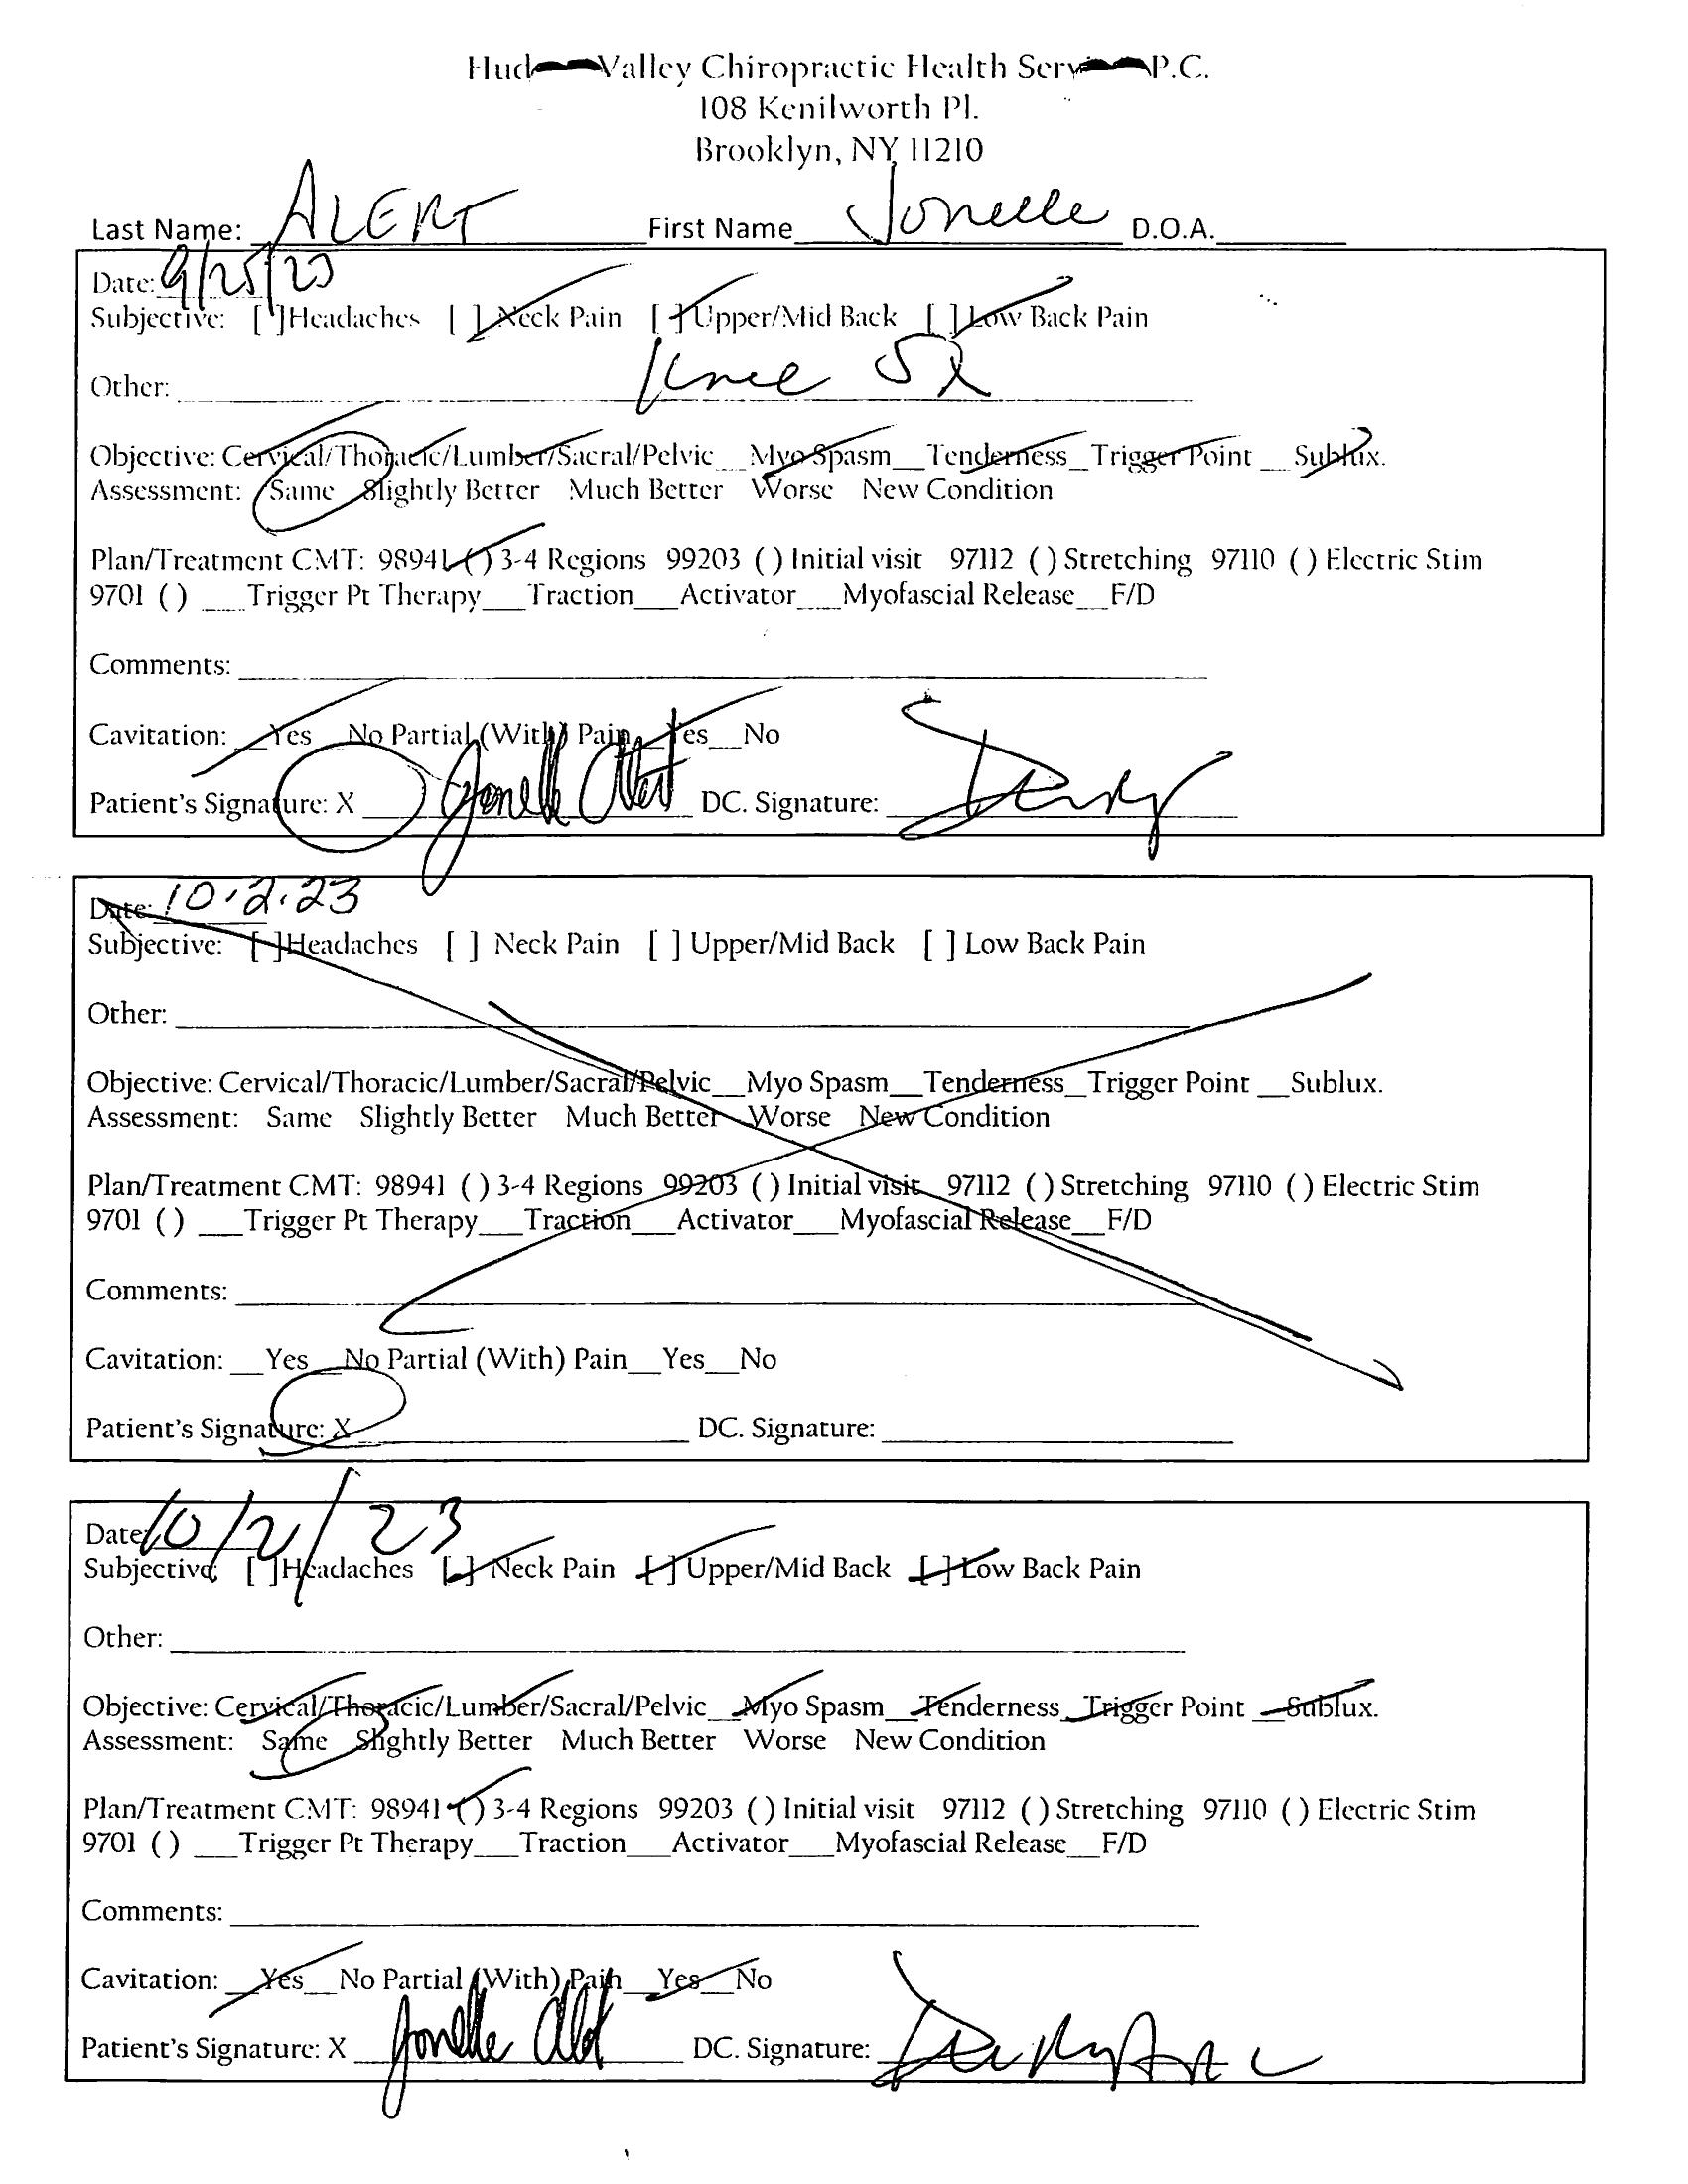 Hud Valley Chiropractic Health Serv P.C.
108 Kenilworth Pl.
Brooklyn, NY 11210
Last Name: ALERT First Name Jonelle D.O.A.
Date: 9/25/23
Subjective: [ ]Headaches [ ] Neck Pain [ ] Upper/Mid Back [ ] Low Back Pain
Other: Knee Sx
Objective: Cervical/Thoracic/Lumber/Sacral/Pelvic__Myo Spasm__Tenderness_Trigger Point __Sublux.
Assessment: Same Slightly Better Much Better Worse New Condition
Plan/Treatment CMT: 98941 ( ) 3-4 Regions 99203 ( ) Initial visit 97112 ( ) Stretching 97110 ( ) Electric Stim
9701 ( ) ___Trigger Pt Therapy___Traction___Activator___Myofascial Release__F/D
Comments:
Cavitation: __Yes__No Partial (With) Pain__Yes__No
Patient's Signature: X Jonelle Alert DC. Signature:
Date: 10.2.23
Subjective: [ ]Headaches [ ] Neck Pain [ ] Upper/Mid Back [ ] Low Back Pain
Other:
Objective: Cervical/Thoracic/Lumber/Sacral/Pelvic__Myo Spasm__Tenderness_Trigger Point __Sublux.
Assessment: Same Slightly Better Much Better Worse New Condition
Plan/Treatment CMT: 98941 ( ) 3-4 Regions 99203 ( ) Initial visit 97112 ( ) Stretching 97110 ( ) Electric Stim
9701 ( ) ___Trigger Pt Therapy___Traction___Activator___Myofascial Release__F/D
Comments:
Cavitation: __Yes__No Partial (With) Pain__Yes__No
Patient's Signature: X DC. Signature:
Date: 10/2/23
Subjective: [ ]Headaches [ ] Neck Pain [ ] Upper/Mid Back [ ] Low Back Pain
Other:
Objective: Cervical/Thoracic/Lumber/Sacral/Pelvic__Myo Spasm__Tenderness_Trigger Point __Sublux.
Assessment: Same Slightly Better Much Better Worse New Condition
Plan/Treatment CMT: 98941 ( ) 3-4 Regions 99203 ( ) Initial visit 97112 ( ) Stretching 97110 ( ) Electric Stim
9701 ( ) ___Trigger Pt Therapy___Traction___Activator___Myofascial Release__F/D
Comments:
Cavitation: __Yes__No Partial (With) Pain__Yes__No
Patient's Signature: X Jonelle Alert DC. Signature: